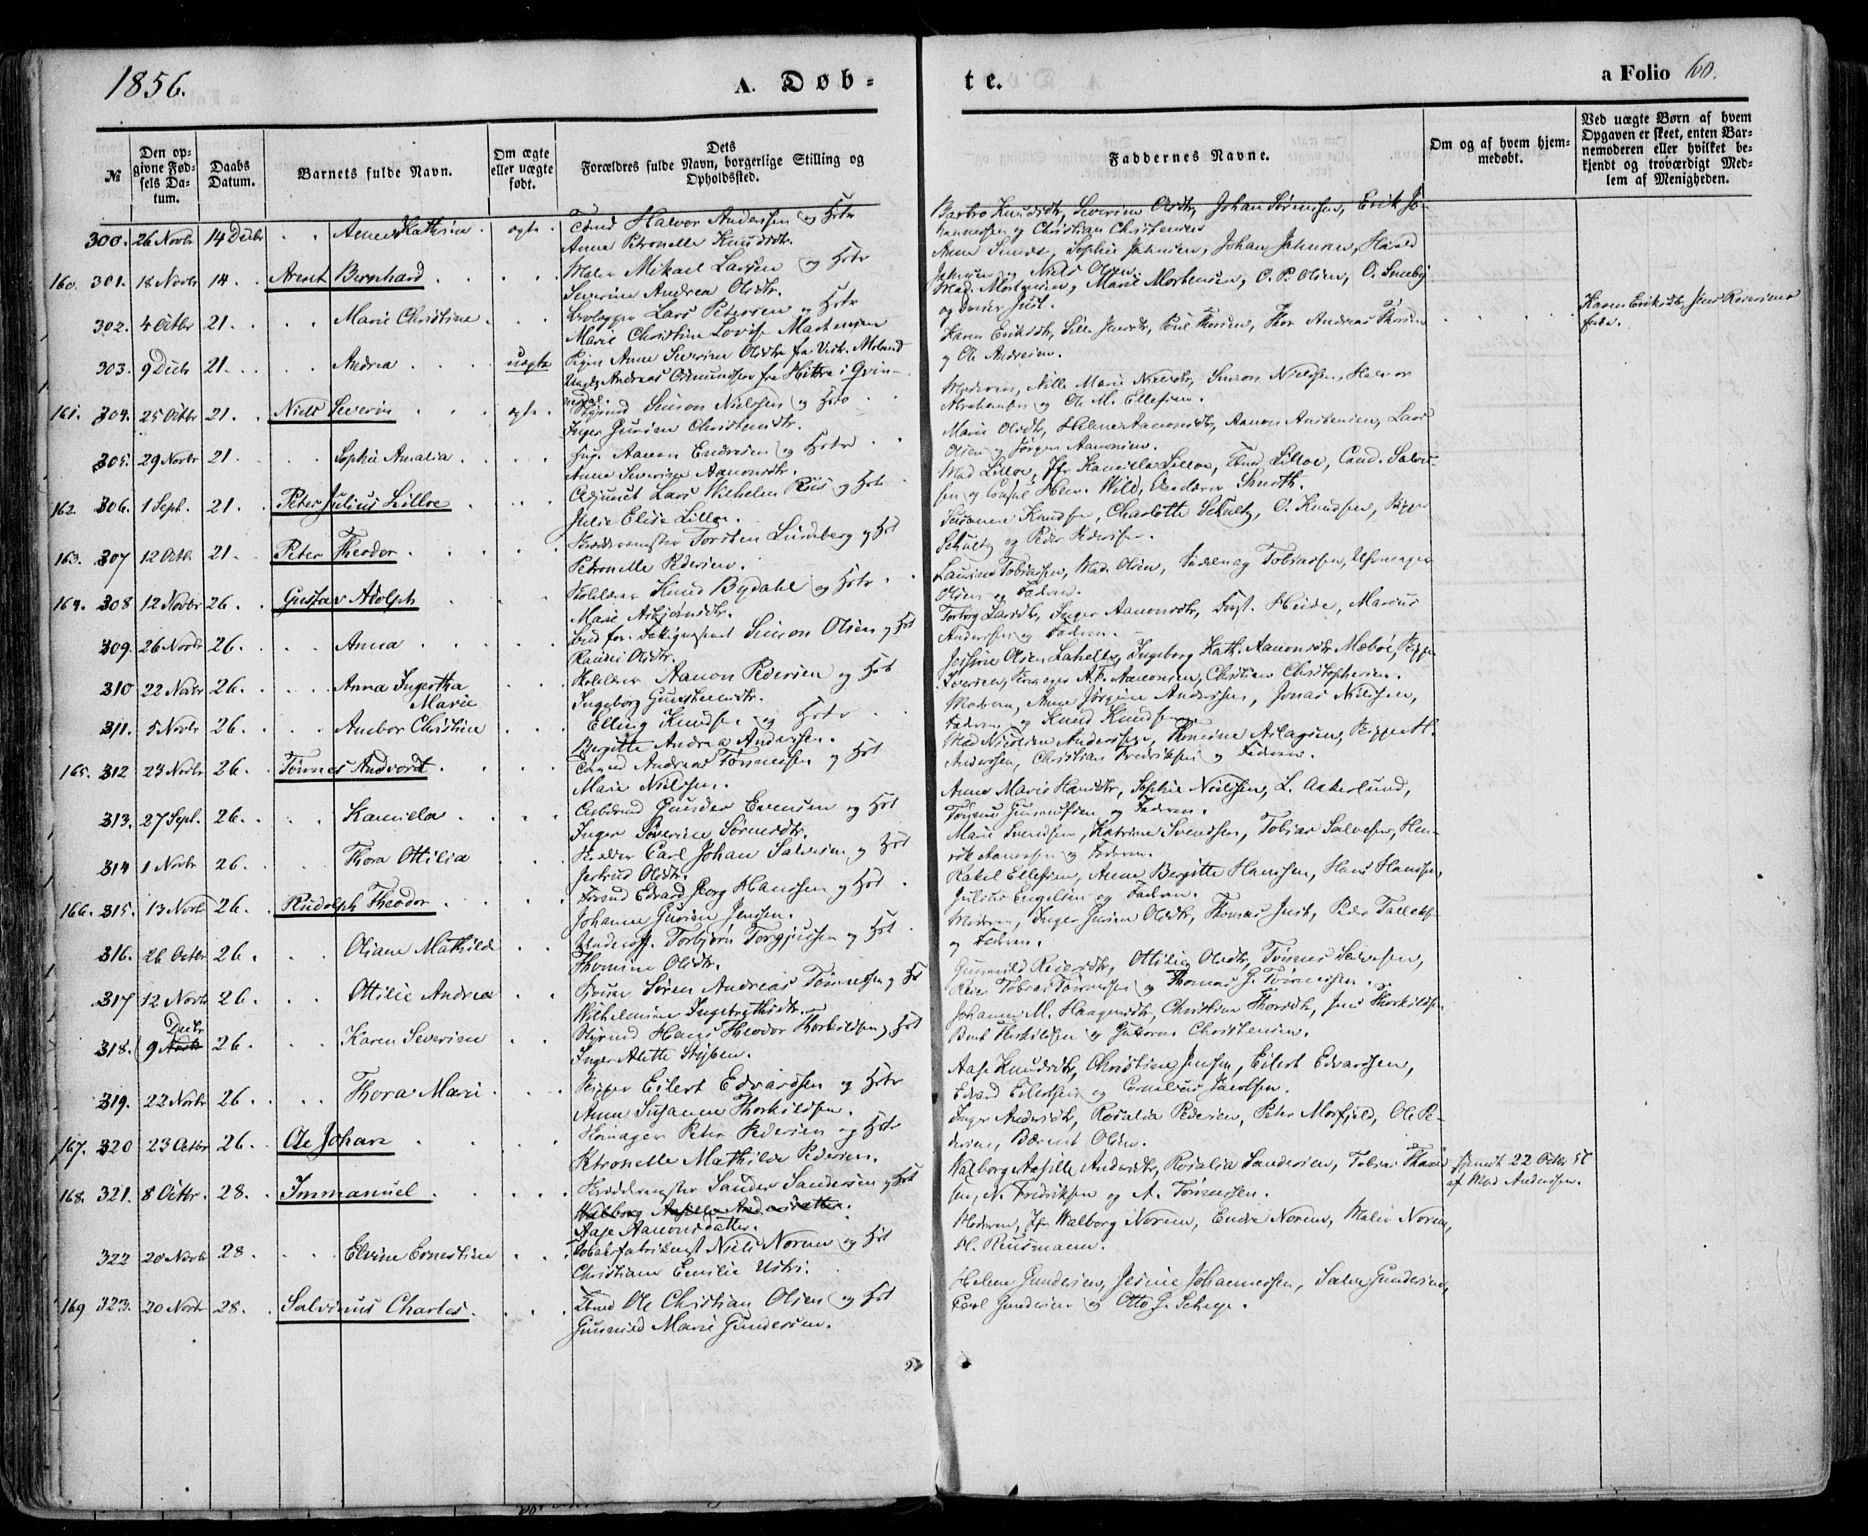 1856.
A. Døb-
te.
a Folio 60.
№
Den opgivne Fødsels Datum.
Daabs Datum.
Barnets fulde Navn.
Om ægte eller uægte født.
Dets Forældres fulde Navn, borgerlige Stilling og Opholdssted.
Faddernes Navne.
Om og af hvem hjemmedøbt.
Ved uægte Børn af hvem Opgaven er skeet, enten Barnemoderen eller hvilket bekjendt og troværdigt Medlem af Menigheden.
300. 26 Novbr 14 Decbr Anne Kathrine ægte Halvor Anderssen og Hstr
Anne Petronelle Knudsdtr.
Barbro Knudsdtr, Severine Olsdtr, Johan Sørenssen, Erik Johannessen og Christian Christensen
160. 301. 18 Novbr 14. Arent Bernhard Maler Mikael Larsen og Hstr
Severine Andrea Olsdtr.
Anne Sunde, Sophie Jahnsen, Johan Jahnsen, Harald Jahnsen og Niels Olsen.
302. 4 Octbr 21. Marie Christine Lars Petersen og Hstr
Marie Christine Lovise Mortensen
Mad. Mortensen, Marie Mortensen, O. P. Olsen, O. Smeby og Just.
303. 9 Decb 21. Andrea uægte Pigen Anne Severine Olsdtr fra Vestr. Moland
Ungk. Andreas Osmundsen fra Hitterø i Qvinesdal.
Karen Eriksdtr, Sille Jensdtr, Poul Thorsen, Thor Andreas Thorsen og Ole Andersen.
Karen Eriksdtr, Jens Reiersens
161. 304. 25 Octbr 21. Niels Severin ægte Styrmd Simon Nielssen og Hstr
Inger Gurine Christensdtr.
Moderen, Nille Marie Nielsdtr, Simon Nielssen, Halvor Abrahamsen og Ole M. Ellefsen.
305. 29 Novbr 21. Sophie Amalia Aanon Endresen og Hstr
Anne Severine Aanonsdtr.
Marie Olsdtr, Helene Aanonsdtr, Aanon Andersen, Lars Olsen og Jørgen Aanonsen.
162. 306. 1 Sept. 21. Peter Julius Lilloe Adjunct Lars Wilhelm Riis og Hstr
Julie Elise Lilloe.
Mad Lilloe, Jfr Kamilla Lilloe, Ebner Lilloe, Cand. Salvesen og Consul Herr. Wild, Smith.
163. 307 12 Octb. 21. Peter Theodor Skræddermester Torsten Lundberg og Hst
Petronelle Pedersen.
Susanne Knudsen, Charlotte Schultz, O. Knudsen, Skipper Schultz og Peder Pedersen.
164. 308 12 Novbr 26. Gustav Adolph Skolelærer Knud Bydahl og Hstr
Marie Asbjørnsdtr.
Laurine Tobiassen, Mad. Olsen, Tobiassen, Uhrmager Olsen og Faderen.
309. 26 Novbr 26. Anna Simon Olsen og Hst
Randi Olsdtr.
Torborg Larsdtr, Inger Aanonsdtr, Heide, Marius Anderssen og Faderen.
310 22 Novbr 26. Anna Ingertha Marie Aanon Pedersen og Hst
Ingeborg Gunstensdtr.
Jessine Olsen Lahelle, Ingeborg Kath. Aanonsdtr Mæbøe, Skipper Iversen, A. P. Aanonsen, Christian Christophersen.
311. 5 Novbr 26. Anbor Christine Elling Knudsen og Hstr
Bergitte Andrea Anderssen.
Moderen, Anne Jørgine Anderssen, Jonas Nielssen, Faderen og Knud Knudsen.
165. 312 23 Novbr 26. Tønnes Andvordt Andreas Tønnessen og Hst
Marie Nielssen.
Mad Nicoline Anderssen, Thrine Aslagsen, Skipper H. Anderssen, Christian Fredriksen og Faderen.
313. 27 Sept. 26. Kamilla Arbmd Gunder Evensen og Hst
Inger Severine Sørensdtr.
Anne Marie Hansdtr, Sophie Nielssen, L. Aakerlund, Tønnes Gunnufsen og Faderen.
314 1 Novbr 26. Thora Ottilia Skrædder Carl Johan Salvesen og Hst
Gertrud Olsdtr.
Marie Svendsen, Katrine Svendsen, Tobias Salvesen, Henrik Aanensen og Faderen.
166. 315. 13 Novb 26. Rudolph Theodor Edvard Georg Hanssen og Hst
Johanne Gurine Jenssen.
Rakel Ellefsen, Anne Bergitte Hanssen, Hans Hanssen, Julius Engelsen og Faderen.
316. 26 Octbr 26. Oliane Mathilde Underoff. Torbjørn Torgjussen og Hst
Thomine Olsdtr.
Moderen, Inger Jensine Olsdtr, Thomas Just, Peder Tallaksen og Faderen.
317 12 Novbr 26. Ottilie Andrea Søren Andreas Tønnessen og Hst
Wilhelmine Ingebrethsdtr.
Gunnild Reiersdtr, Ottilie Olsdtr, Tønnes Salvesen, Tobias Tønnessen og Thomas G. Tønnessen.
318. 9 Decbr 26. Karen Severine Styrmd Hans Theodor Thorkildsen og Hst
Inger Alette Stybew.
Johanne M. Haagensdtr, Christine Thorsdtr, Jens Thorkildsen, Bent Thorkildsen og Guttorm Christensen.
319. 22 Novbr 26. Thora Marie Skipper Eilert Edvardsen og Hstr
Anne Susanne Thorkildsen.
Aase Knudsdtr, Christine Jensen, Eilert Edvardsen, Edvard Eilertsen og Cornelius Jacobsen.
167. 320 23 Octbr 26. Ole Johan Peter Pedersen og Hstr
Petronelle Mathilde Pedersen.
Inger Andersdtr, Rosalia Pedersen, Peter Morfjeld, Ole Pedersen, Bærent Olsen.
168. 321. 8 Octbr. 28. Immanuel Skræddermester Sander Sandersen og Hst
Walborg Aasille Andersdatter.
Aase Aanonsdatter.
Walborg Aasille Andersdtr, Rosalia Sandersen, Tobias Thorsen, N. Fredriksen og A. Tønnessen.
hjemdt 22 Octbr 56 af Mad Anderssen.
322 20 Novbr 28. Elvine Ernestine Tobaksfabrikant Niels Norum og Hst
Christiane Emilie Usts.
Moderen, Jfr Walborg Norum, Endre Norum, Malie Norum, H. Reusmann.
169 323. 20 Novbr 28. Salvinius Charles Ole Christian Olsen og Hst
Gunnild Marie Gundersen.
Helene Gundersen, Jesine Johannessen, Salve Gundersen, Carl Gundersen og Otto G. Scheye.